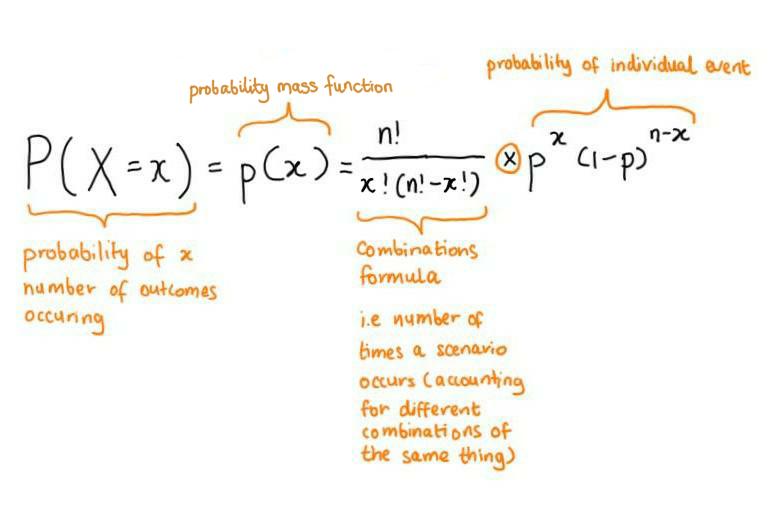 probability of individual event
probability mass function
P(X=x) = p(x) = n! / x!(n!-x!) × p^x (1-p)^(n-x)
probability of x
number of outcomes
occuring
Combinations
formula
i.e number of
times a scenario
occurs (accounting
for different
combinations of
the same thing)